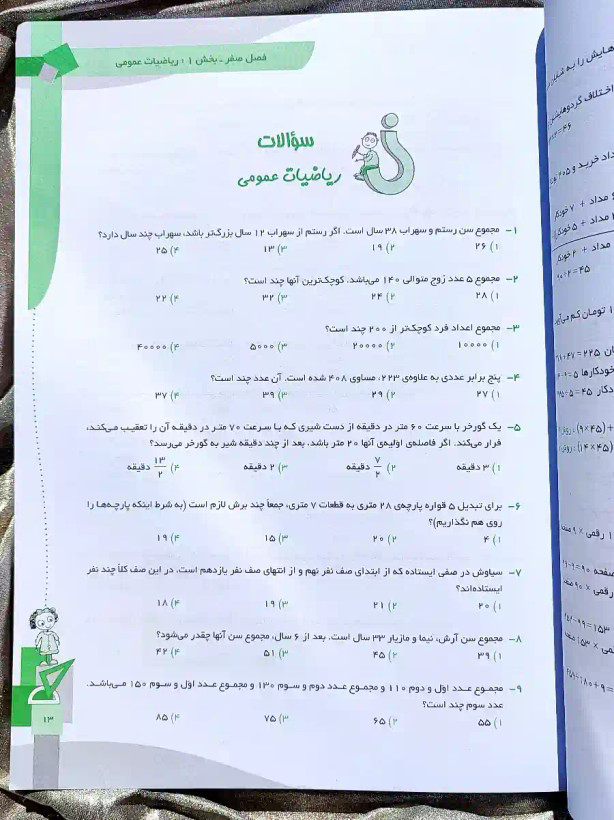 فصل صفر ـ بخش ۱ : ریاضیات عمومی
سؤالات
ریاضیات عمومی
۱– مجموع سن رستم و سهراب ۳۸ سال است. اگر رستم از سهراب ۱۲ سال بزرگ‌تر باشد، سهراب چند سال دارد؟
۱) ۲۶ ۲) ۱۹ ۳) ۱۳ ۴) ۲۵
۲– مجموع ۵ عدد زوج متوالی ۱۴۰ می‌باشد. کوچک‌ترین آنها چند است؟
۱) ۲۸ ۲) ۲۴ ۳) ۳۲ ۴) ۲۲
۳– مجموع اعداد فرد کوچک‌تر از ۲۰۰ چند است؟
۱) ۱۰۰۰۰ ۲) ۲۰۰۰۰ ۳) ۵۰۰۰ ۴) ۴۰۰۰۰
۴– پنج برابر عددی به علاوه‌ی ۲۲۳، مساوی ۴۰۸ شده است. آن عدد چند است؟
۱) ۲۷ ۲) ۲۹ ۳) ۳۹ ۴) ۳۷
۵– یک گورخر با سرعت ۶۰ متر در دقیقه از دست شیری که با سرعت ۷۰ متر در دقیقه آن را تعقیب می‌کند،
فرار می‌کند. اگر فاصله‌ی اولیه‌ی آنها ۲۰ متر باشد، بعد از چند دقیقه شیر به گورخر می‌رسد؟
۱) ۳ دقیقه ۲) ۷/۲ دقیقه ۳) ۲ دقیقه ۴) ۱۳/۲ دقیقه
۶– برای تبدیل ۵ قواره پارچه‌ی ۲۸ متری به قطعات ۷ متری، جمعاً چند برش لازم است (به شرط اینکه پارچه‌ها را
روی هم نگذاریم)؟
۱) ۴ ۲) ۲۰ ۳) ۱۵ ۴) ۱۹
۷– سیاوش در صفی ایستاده که از ابتدای صف نفر نهم و از انتهای صف نفر یازدهم است. در این صف کلاً چند نفر
ایستاده‌اند؟
۱) ۲۰ ۲) ۲۱ ۳) ۱۹ ۴) ۱۸
۸– مجموع سن آرش، نیما و مازیار ۳۳ سال است. بعد از ۶ سال، مجموع سن آنها چقدر می‌شود؟
۱) ۳۹ ۲) ۴۵ ۳) ۵۱ ۴) ۴۲
۹– مجموع عدد اوّل و دوم ۱۱۰ و مجموع عدد دوم و سوم ۱۳۰ و مجموع عدد اوّل و سوم ۱۵۰ می‌باشد.
عدد سوم چند است؟
۱) ۵۵ ۲) ۶۵ ۳) ۷۵ ۴) ۸۵
۱۳